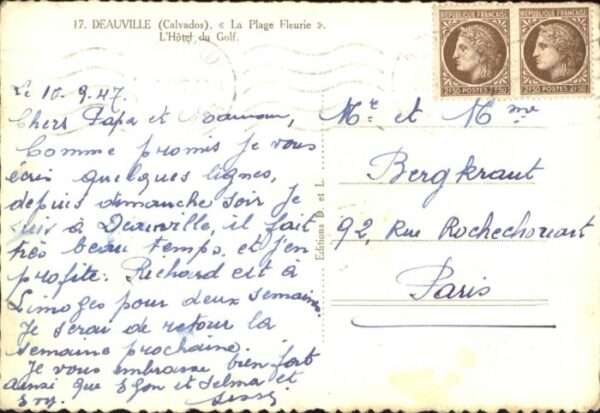 17. DEAUVILLE (Calvados). « La Plage Fleurie ».
L'Hôtel du Golf.
REPUBLIQUE FRANÇAISE
2F50 POSTES 2F50
REPUBLIQUE FRANÇAISE
2F50 POSTES 2F50
Le 10-9-47.
Chers Papa et Maman,
Comme promis je vous
écris quelques lignes,
depuis dimanche soir je
suis à Deauville, il fait
très beau temps, et j'en
profite. Richard est à
Limoges pour deux semaines.
Je serai de retour la
semaine prochaine.
Je vous embrasse bien fort
ainsi que Egon et Selma et
Editions D. et L.
Mr. et Mme
Bergkraut
92, Rue Rochechouart
Paris